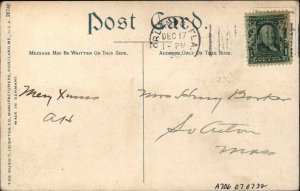 Post Card.
MESSAGE MAY BE WRITTEN ON THIS SIDE.
ADDRESS ONLY ON THIS SIDE.
ORLANDO, FLA.
DEC 17
1-PM
THE HUGH C. LEIGHTON CO., MANUFACTURERS, PORTLAND, ME., U.S.A.
MADE IN GERMANY.
Mery Xmas
AH
Mrs Henry Barker
So Acton
Mass
A706 070732